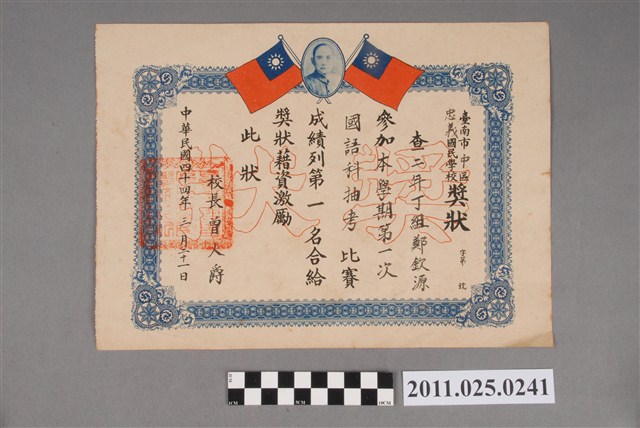 臺南市中區
忠義國民學校
獎狀
字第 號
查二年丁組鄭欽源
參加本學期第一次
國語科抽考比賽
成績列第一名合給
獎狀藉資激勵
此狀
校長曾人爵
中華民國四十四年三月三十一日
獎狀
2011.025.0241